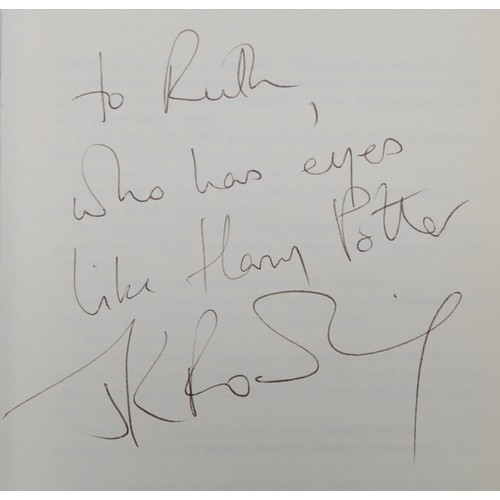 to Ruth,
who has eyes
like Harry Potter
JK Rowling